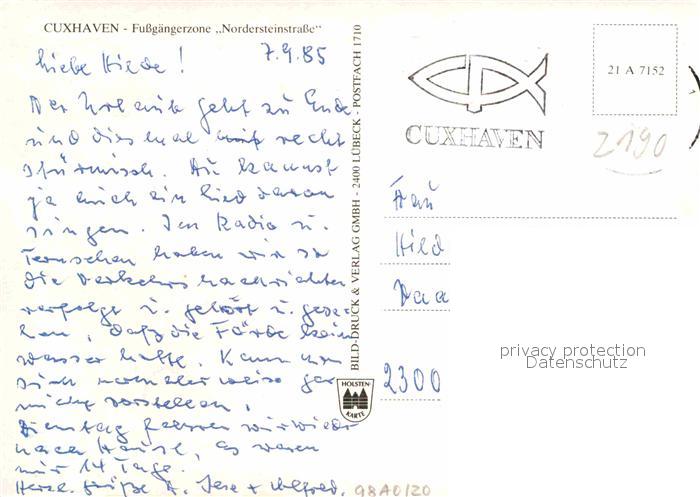 CUXHAVEN - Fußgängerzone „Nordersteinstraße"
7.9.85
Liebe Hilde!
Der Urlaub geht zu Ende
und diesmal recht
stürmisch. Du kannst
ja auch ein Lied davon
singen. Im Radio u.
Fernsehen haben wir so
die Verkehrsnachrichten
verfolgt u. gehört u. gese-
hen, daß die Förde kein
Wasser hatte. Kann man
sich normalerweise gar
nicht vorstellen.
Dienstag fahren wir wieder
nach Hause, es waren
nur 14 Tage.
Herzl. Grüße
BILD-DRUCK & VERLAG GMBH - 2400 LÜBECK - POSTFACH 1710
HOLSTEN-
KARTE
CUXHAVEN
21 A 7152
2190
Frau
Hild
2300
privacy protection
Datenschutz
98A0/20